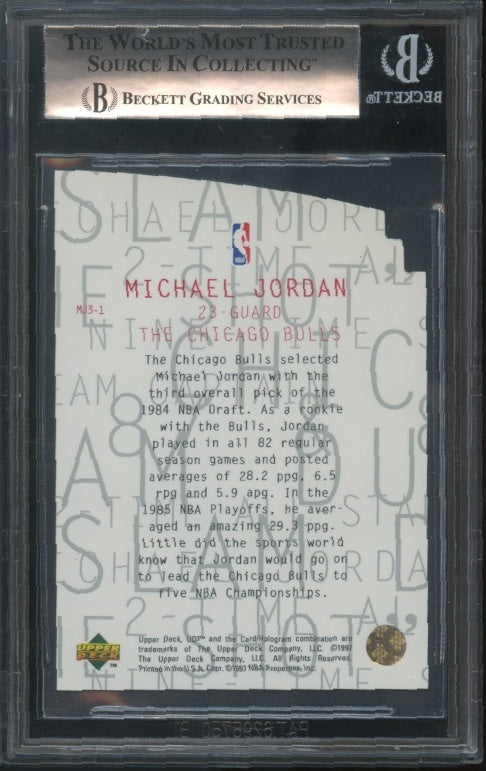 THE WORLD'S MOST TRUSTED
SOURCE IN COLLECTING™
B BECKETT GRADING SERVICES
B
BECKETT®
NBA
MICHAEL JORDAN
MJ3-1
23-GUARD
THE CHICAGO BULLS
The Chicago Bulls selected
Michael Jordan with the
third overall pick of the
1984 NBA Draft. As a rookie
with the Bulls, Jordan
played in all 82 regular
season games and posted
averages of 28.2 ppg, 6.5
rpg and 5.9 apg. In the
1985 NBA Playoffs, he aver-
aged an amazing 29.3 ppg.
Little did the sports world
know that Jordan would go on
to lead the Chicago Bulls to
five NBA Championships.
UPPER
DECK
™
Upper Deck, UD3™ and the Card/Hologram combination are
trademarks of The Upper Deck Company, LLC. ©1997
The Upper Deck Company, LLC. All Rights Reserved.
Printed in the U.S.A. Copr. ©1997 NBA Properties, Inc.